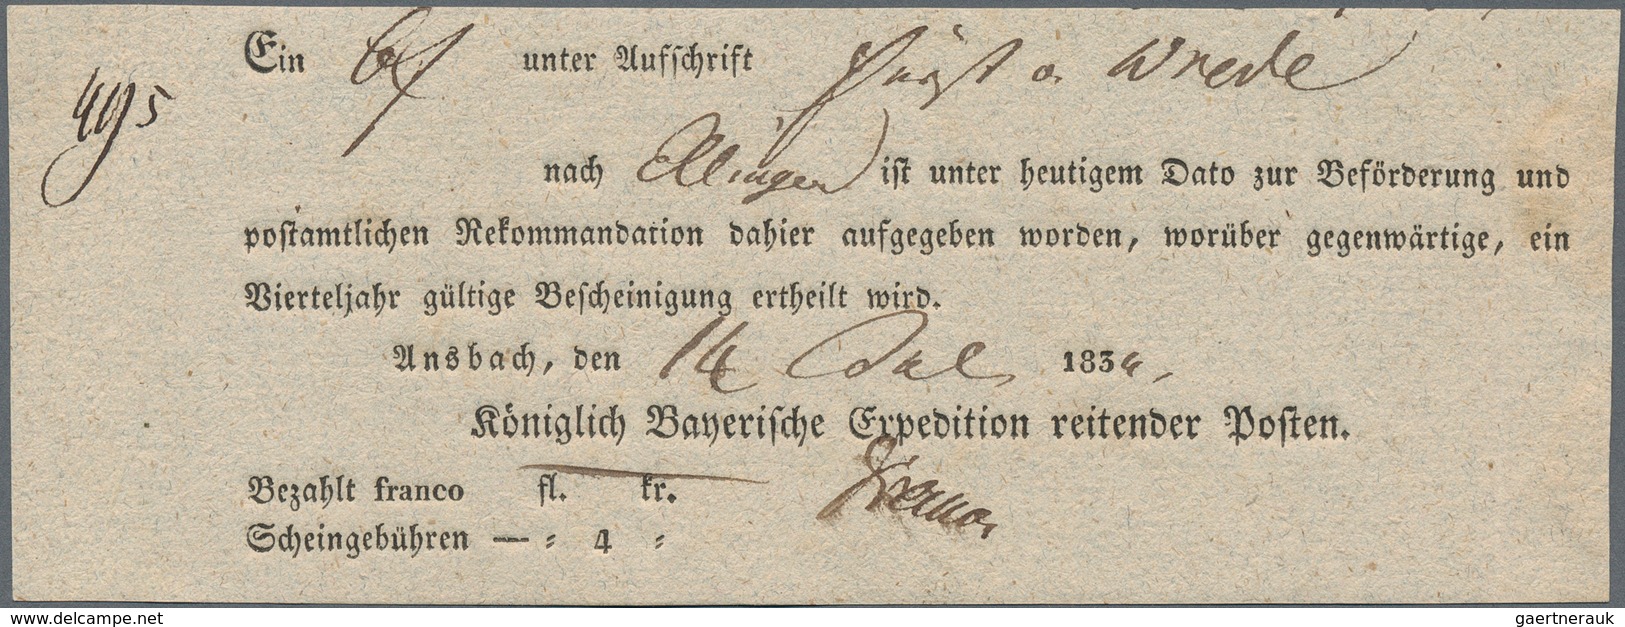 Ein Bf unter Aufschrift Fürst v. Wrede
495
nach Ellingen ist unter heutigem Dato zur Beförderung und
postamtlichen Rekommandation dahier aufgegeben worden, worüber gegenwärtige, ein
Vierteljahr gültige Bescheinigung ertheilt wird.
Ansbach, den 14 Jul 183
Königlich Bayerische Expedition reitender Posten.
Bezahlt franco fl. kr.
Scheingebühren — = 4 =
gaertnerauk